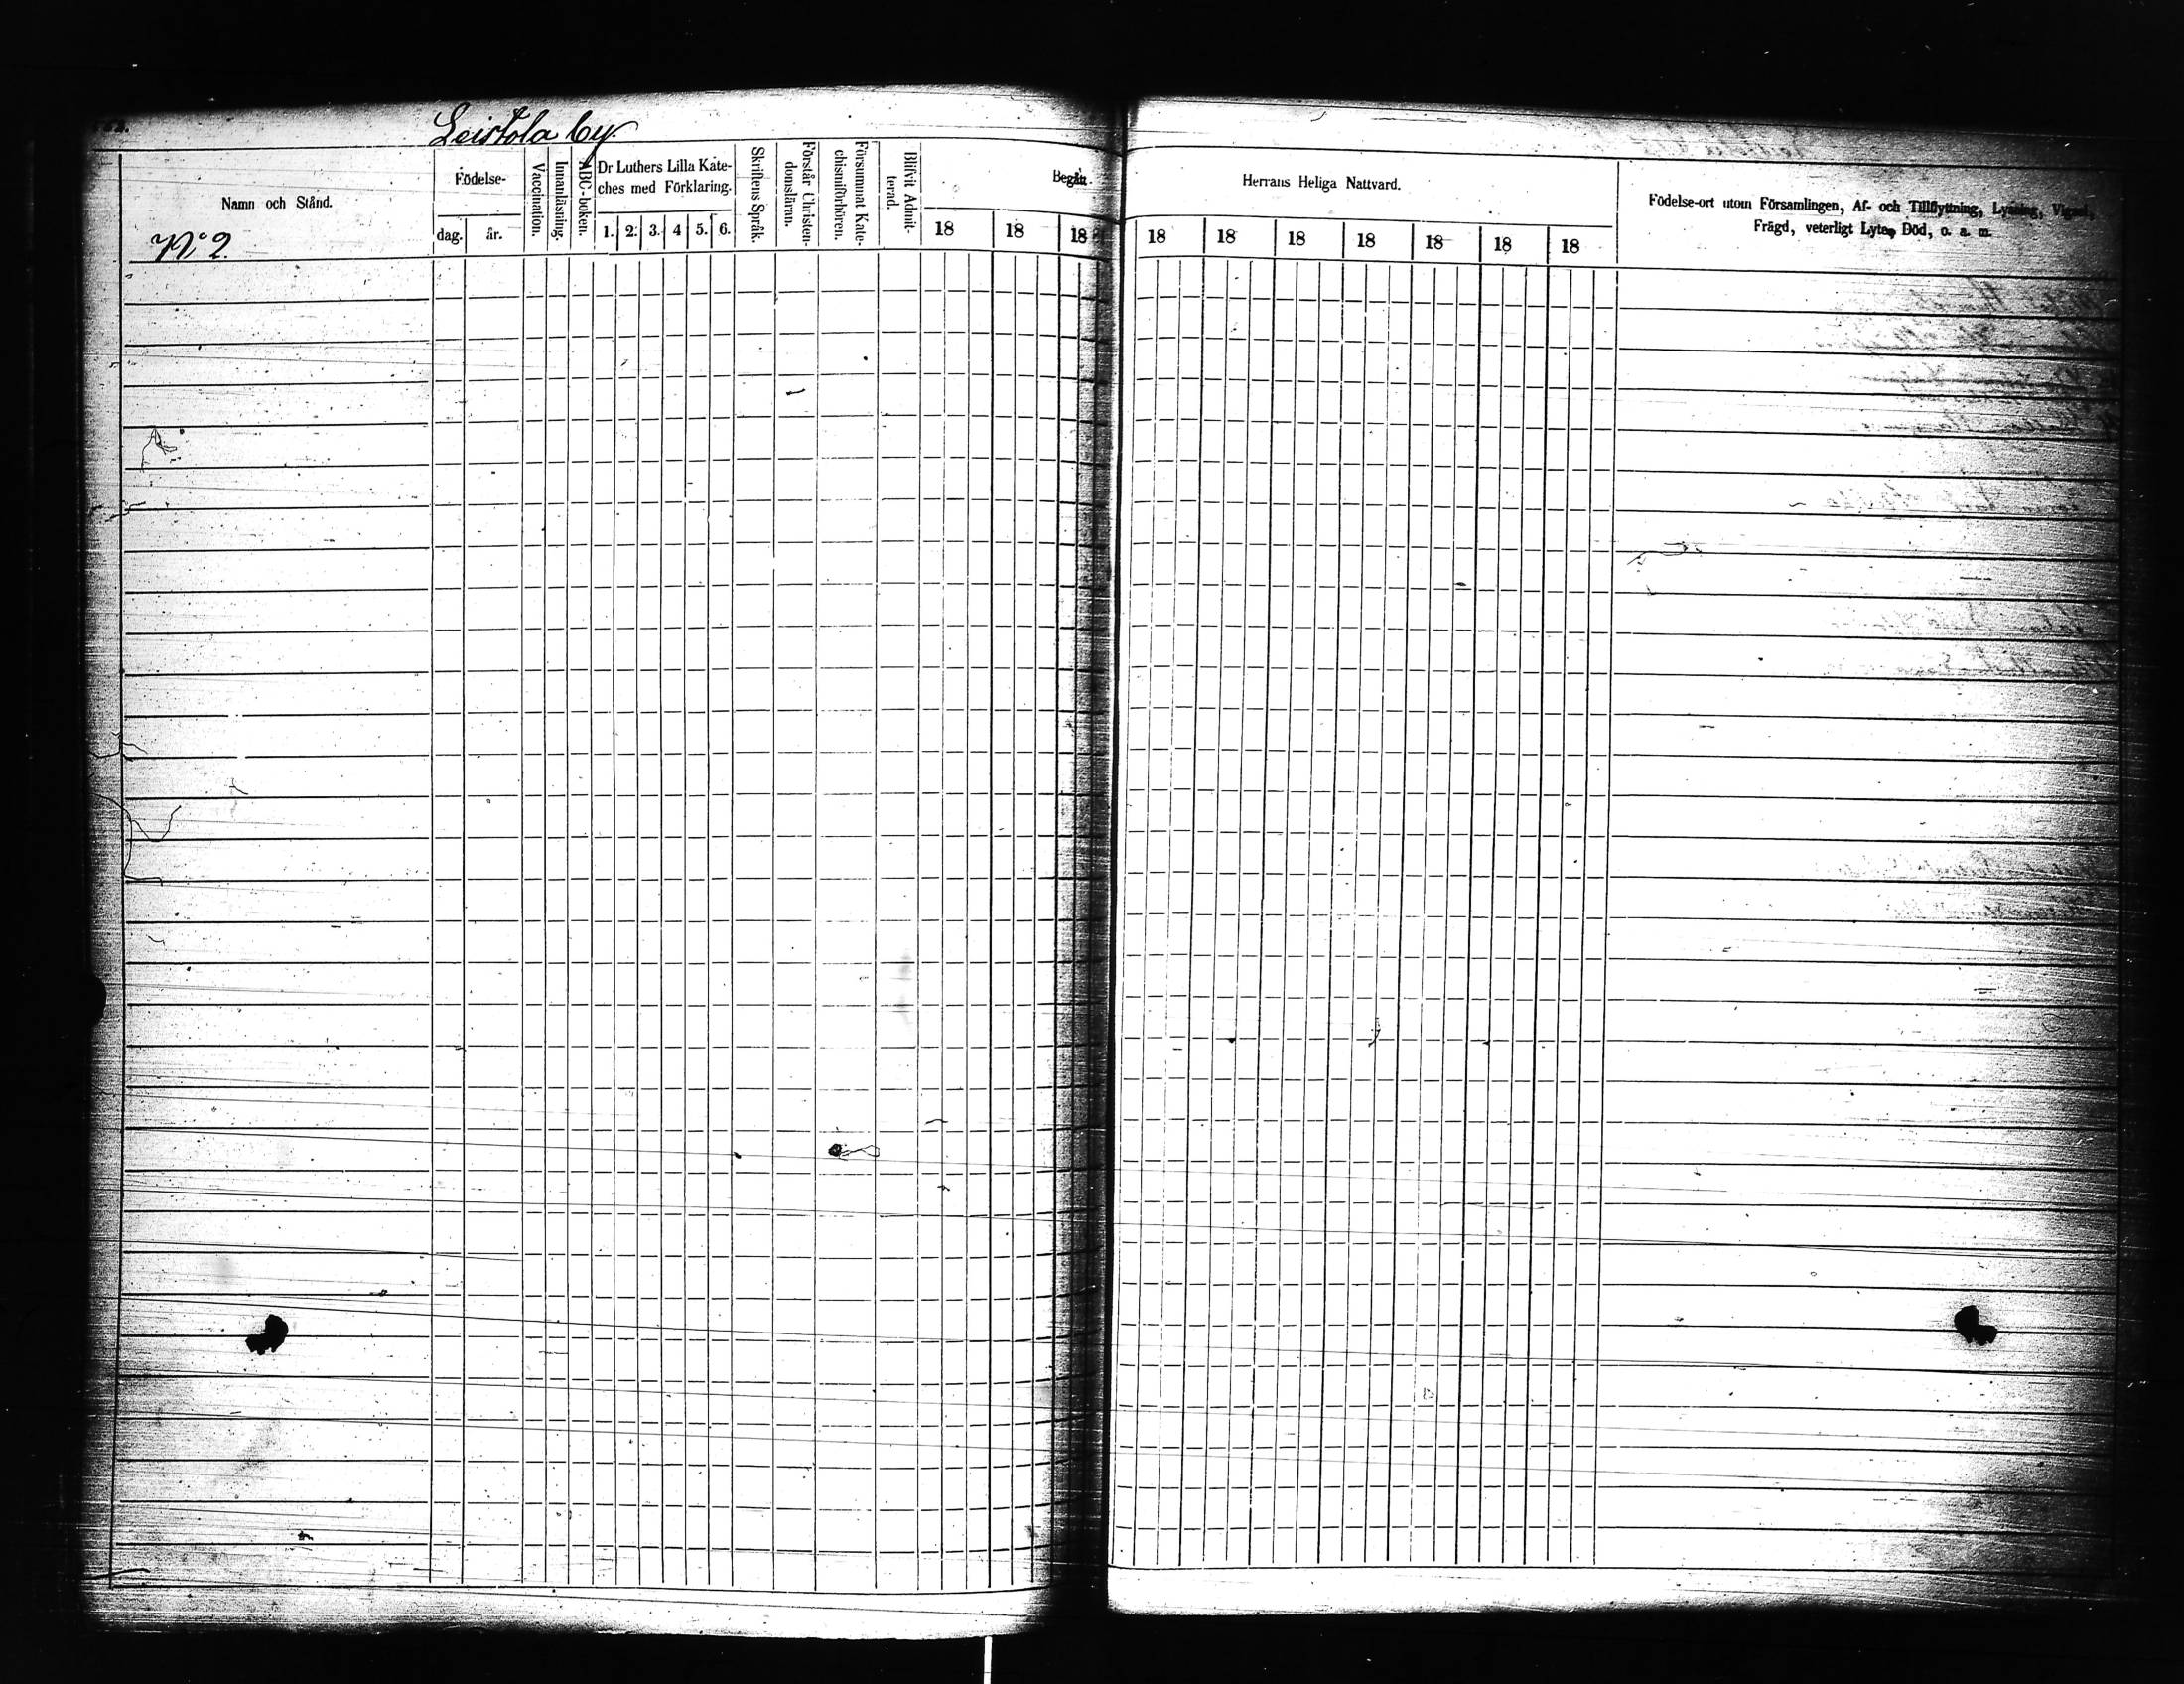 Leistola by
Namn och Stånd.
No 2.
Födelse-
dag.
år.
Vaccination.
Innanläsning.
ABC-boken.
Dr Luthers Lilla Kate-
ches med Förklaring.
1. 2. 3. 4 5. 6.
Skriftens Språk.
Förstår Christen-
domsläran.
Försummat Kate-
chismiförhören.
Blifvit Admit-
terad.
Begått
18 18 18
Herrans Heliga Nattvard.
18 18 18 18 18 18 18
Födelse-ort utom Församlingen, Af- och Tillflyttning, Lysning, Vigsel,
Frägd, veterligt Lyte, Död, o. a. m.